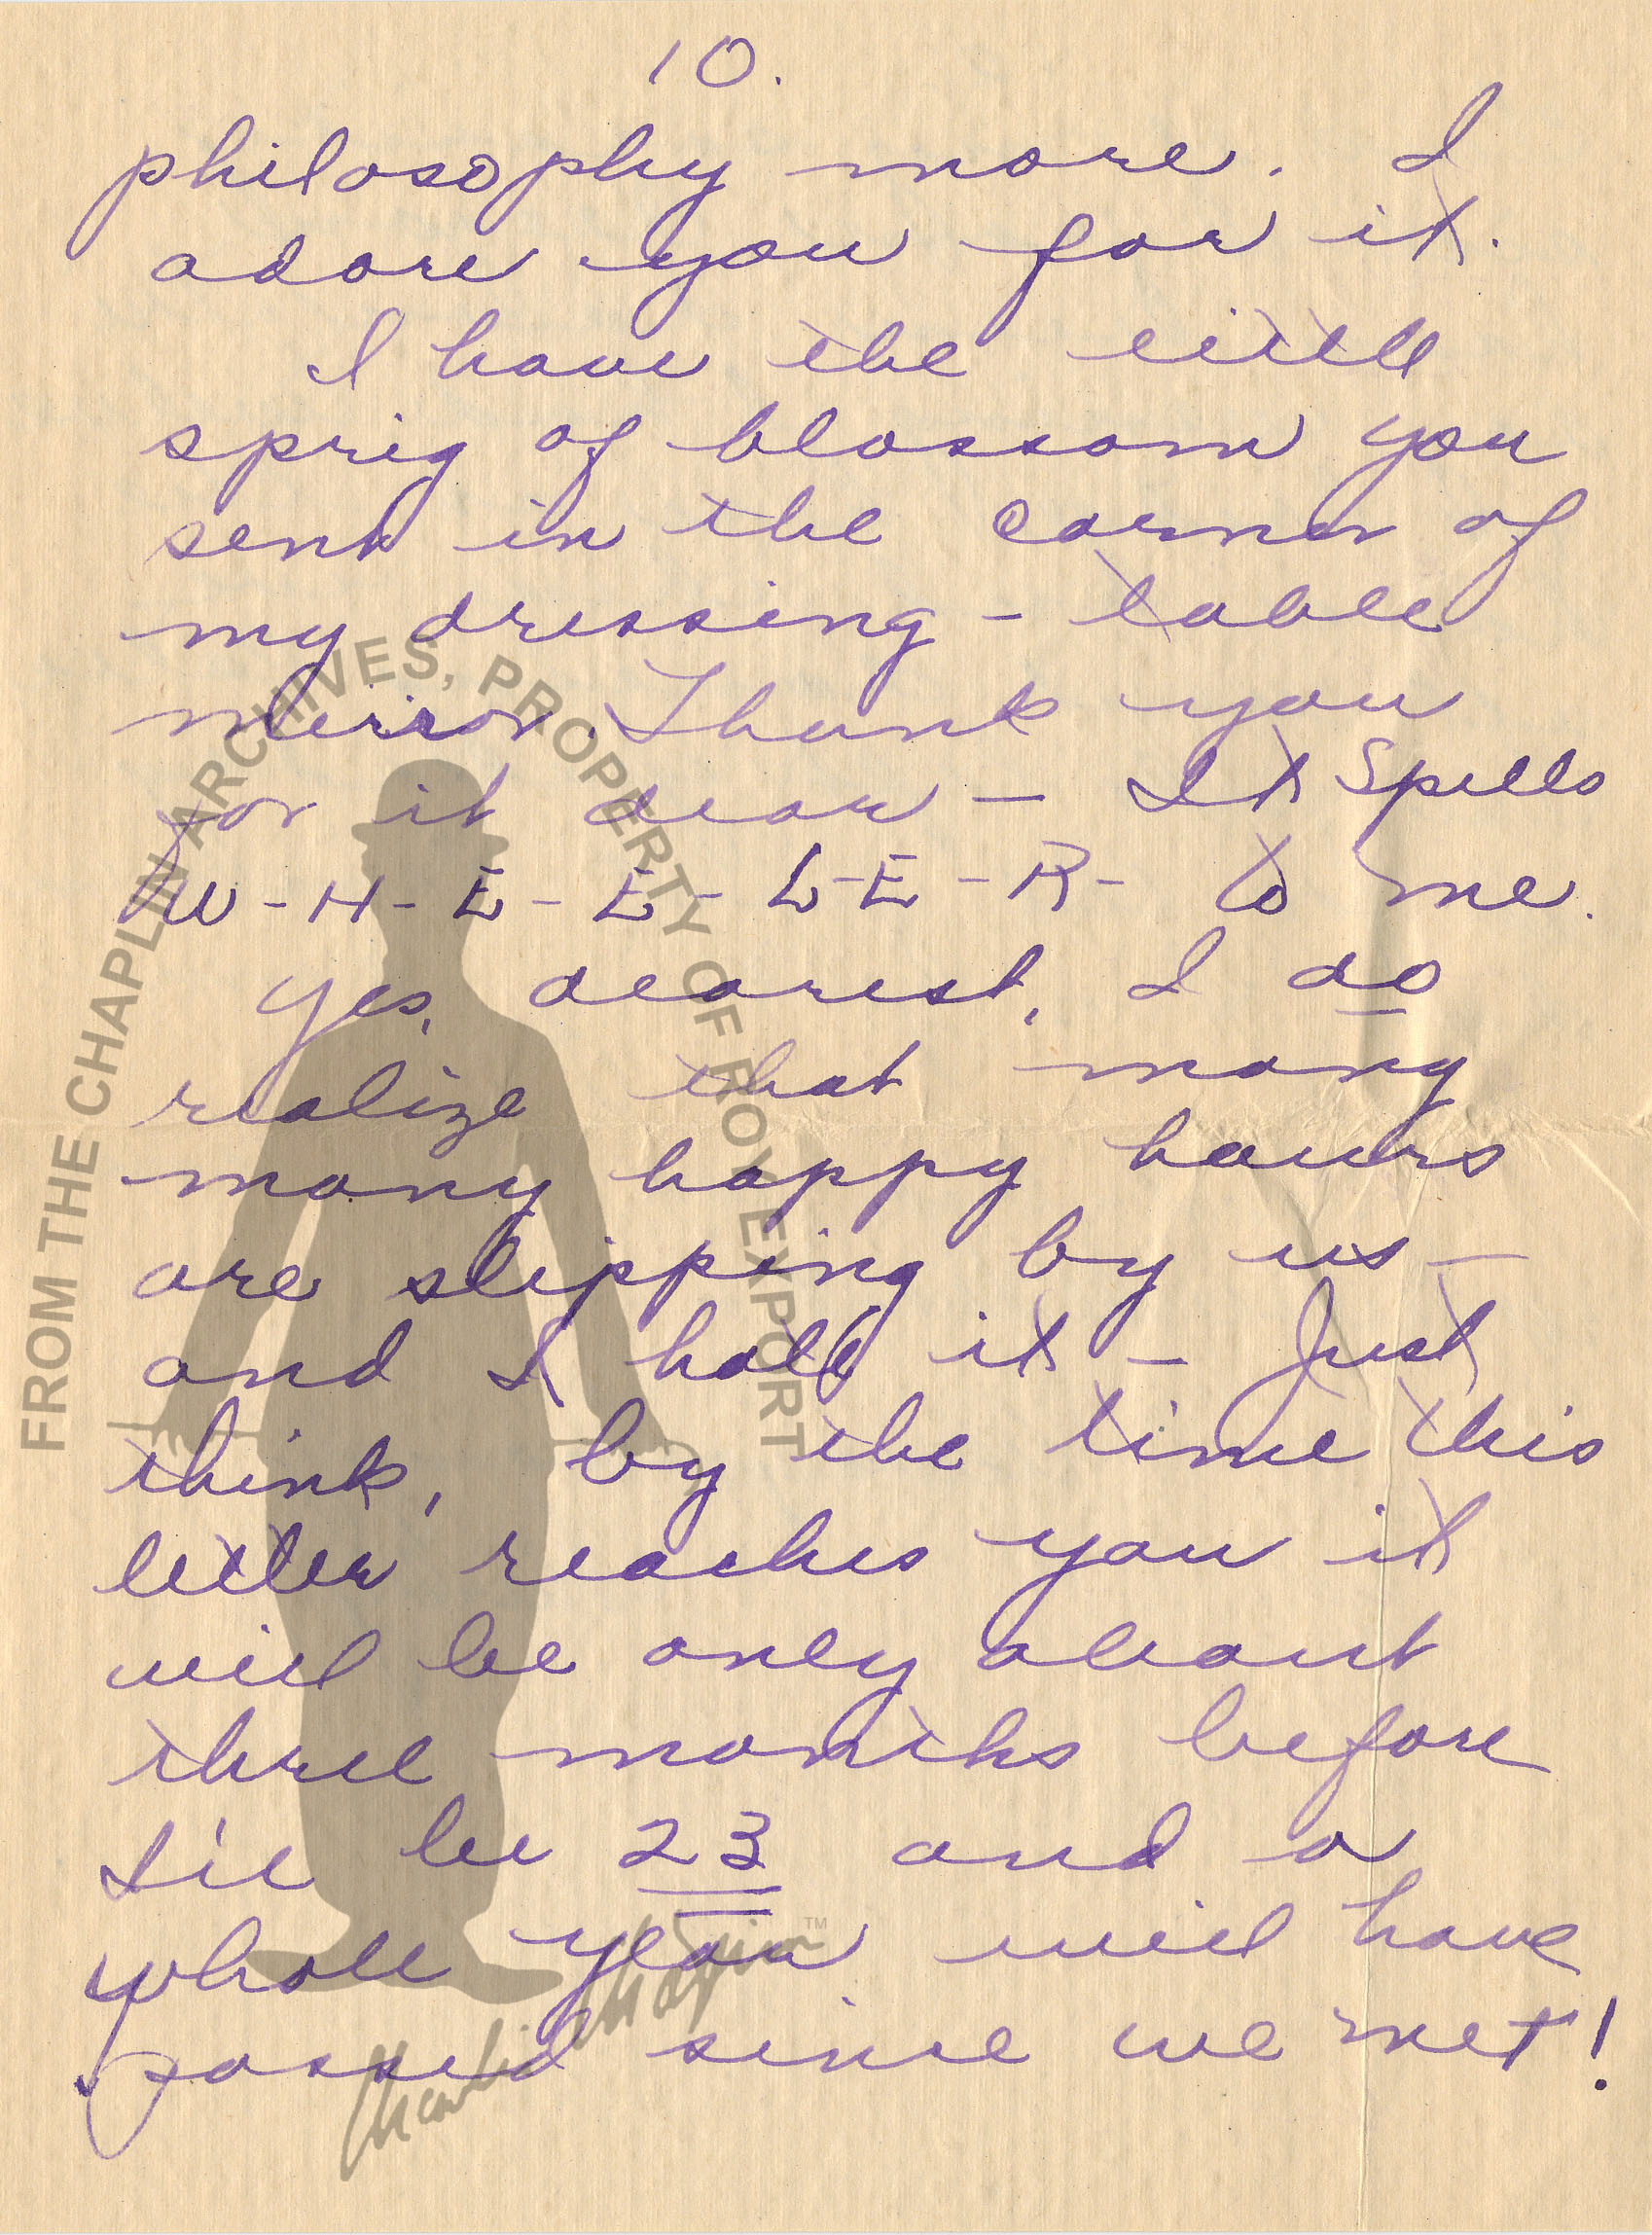 10.
philosophy more. I
adore you for it.
I have the little
sprig of blossom you
sent in the corner of
my dressing - table
mirror. Thank you
for it dear — It Spells
W - H - E - E - L - E - R - to me.
Yes, dearest, I do
realize that many
many happy hours
are slipping by us —
and I hate it — Just
think, by the time this
letter reaches you it
will be only about
three months before
I'll be 23 and a
whole year will have
passed since we met!
FROM THE CHAPLIN ARCHIVES, PROPERTY OF ROY EXPORT
Charlie Chaplin™